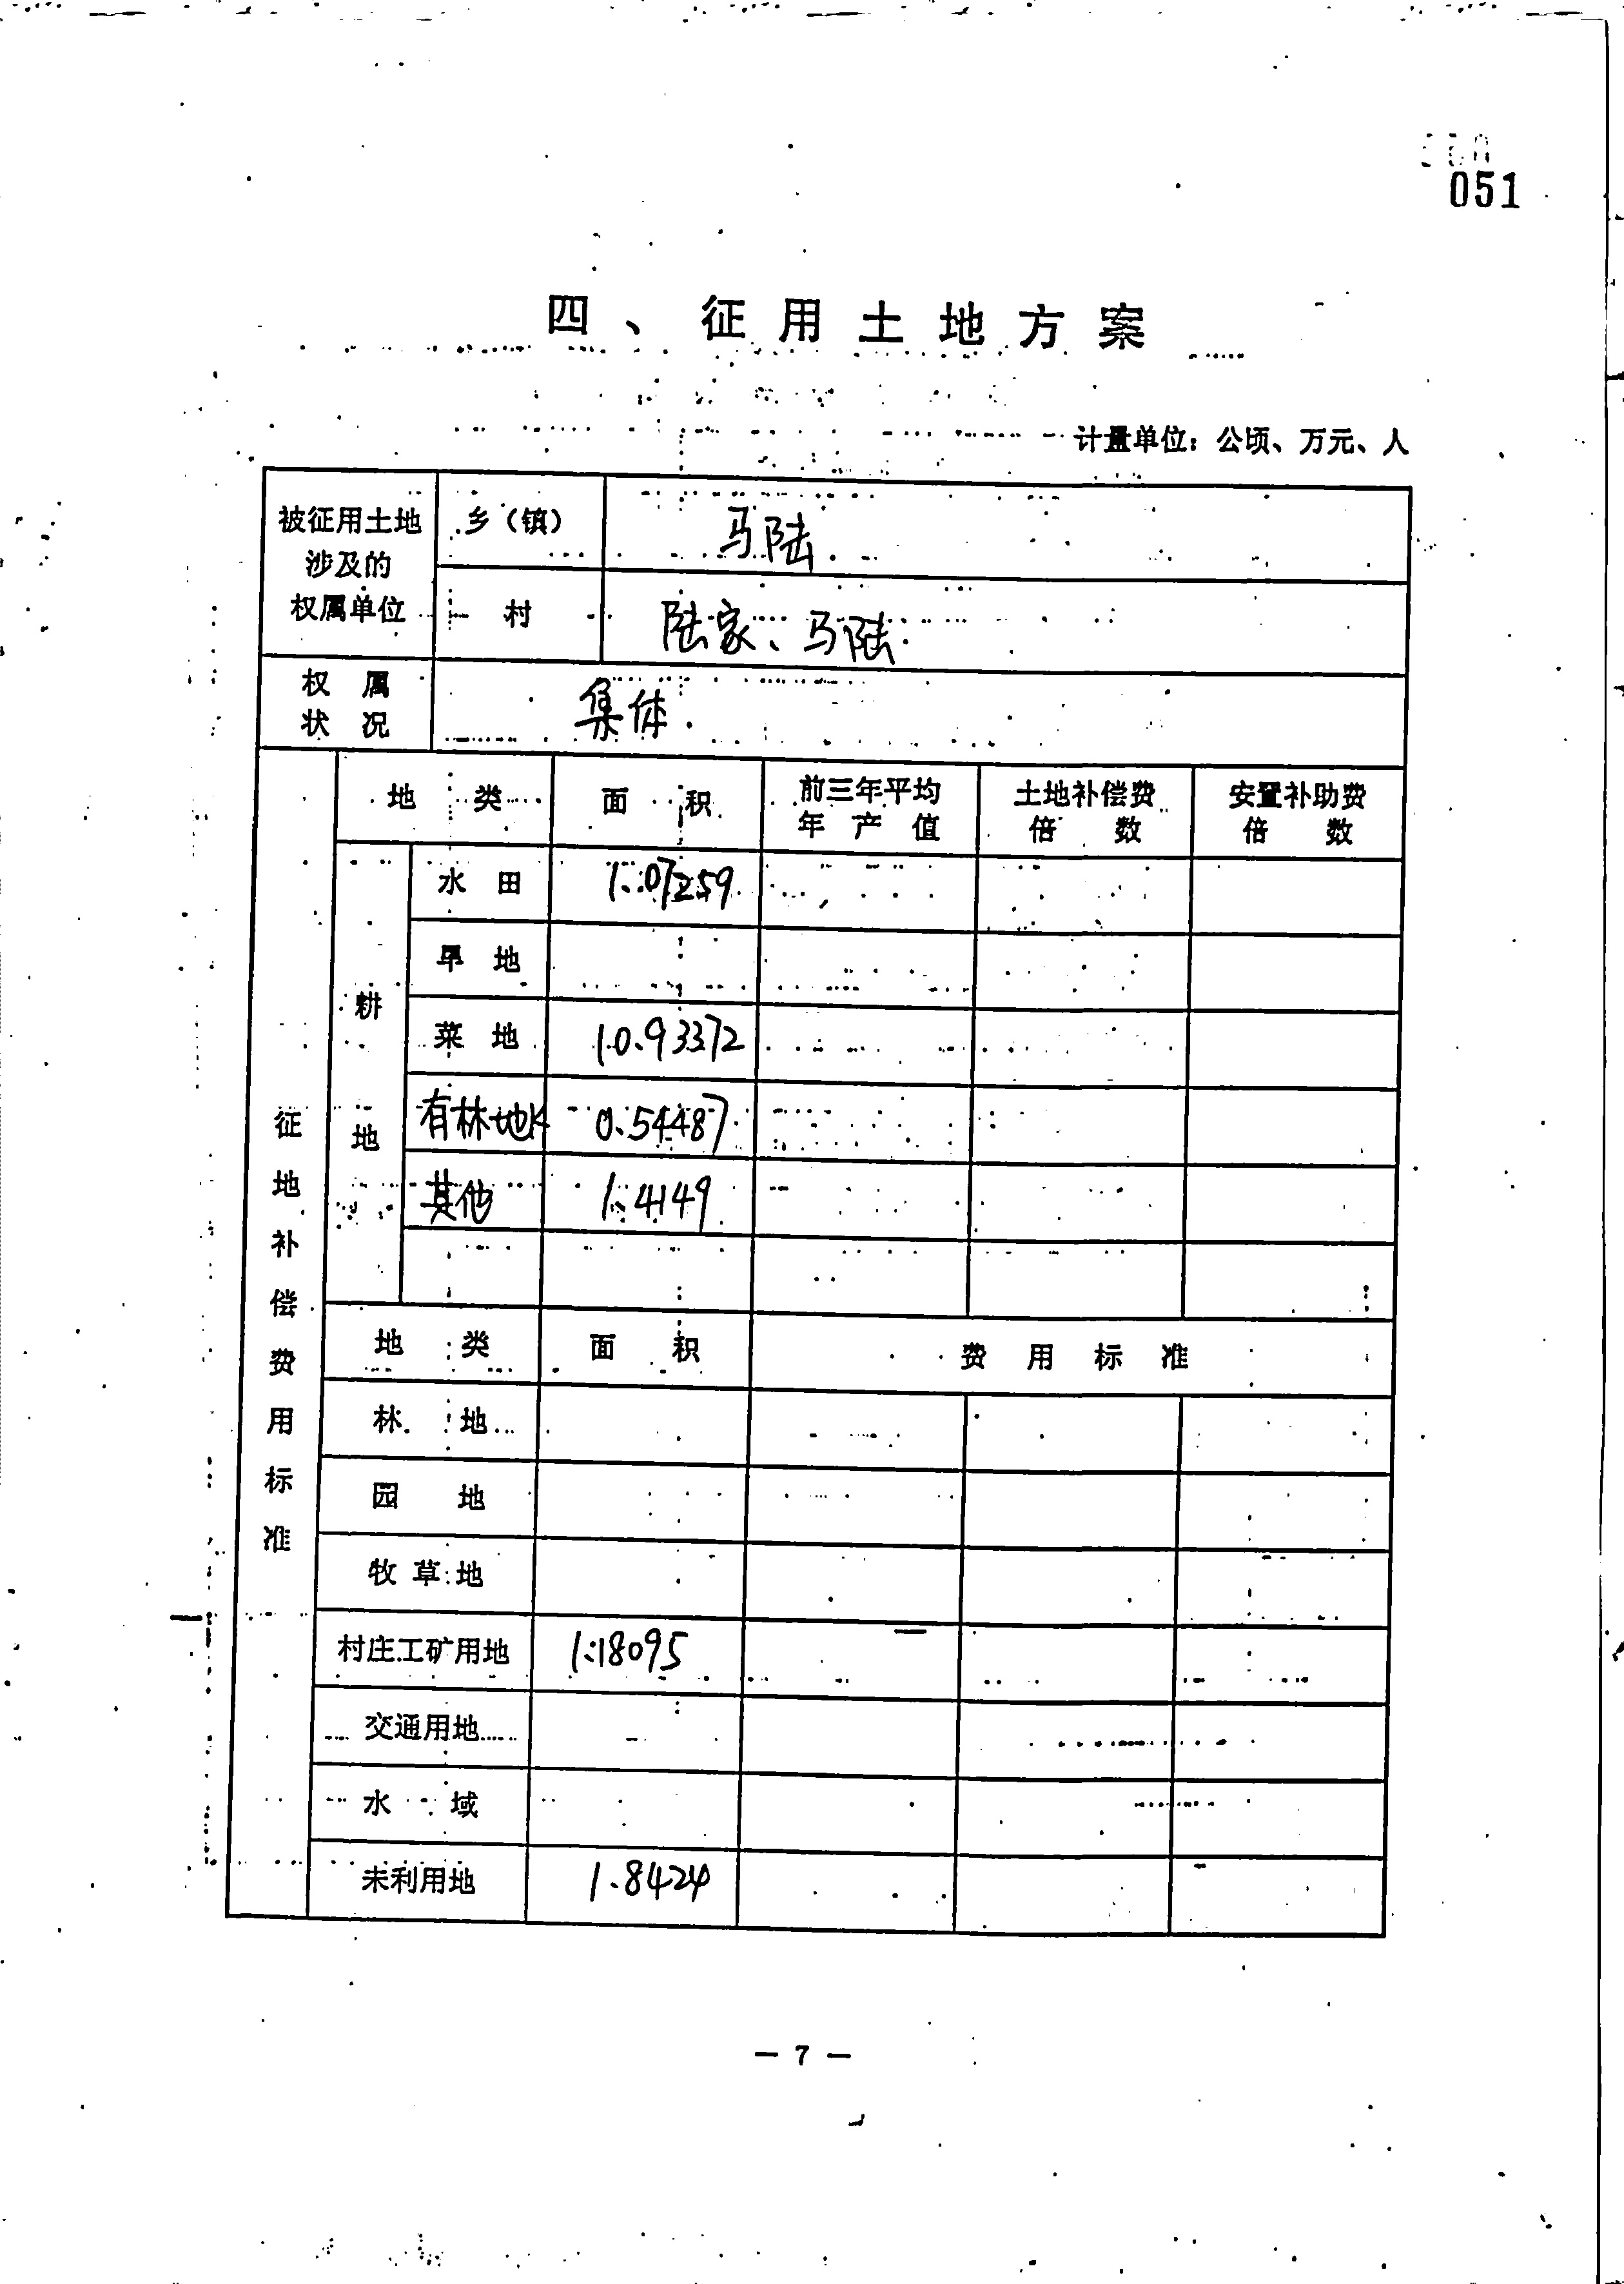 051
四、征用土地方案
计量单位：公顷、万元、人
被征用土地涉及的权属单位 乡（镇） 马陆
村 陆家、马陆
权属状况 集体
征地补偿费用标准
地类 面积 前三年平均年产值 土地补偿费倍数 安置补助费倍数
耕地
水田 1.07259
旱地
菜地 10.93372
有林地 0.54487
其他 1.4149
地类 面积 费用标准
林地
园地
牧草地
村庄工矿用地 1.18095
交通用地
水域
未利用地 1.8424
— 7 —